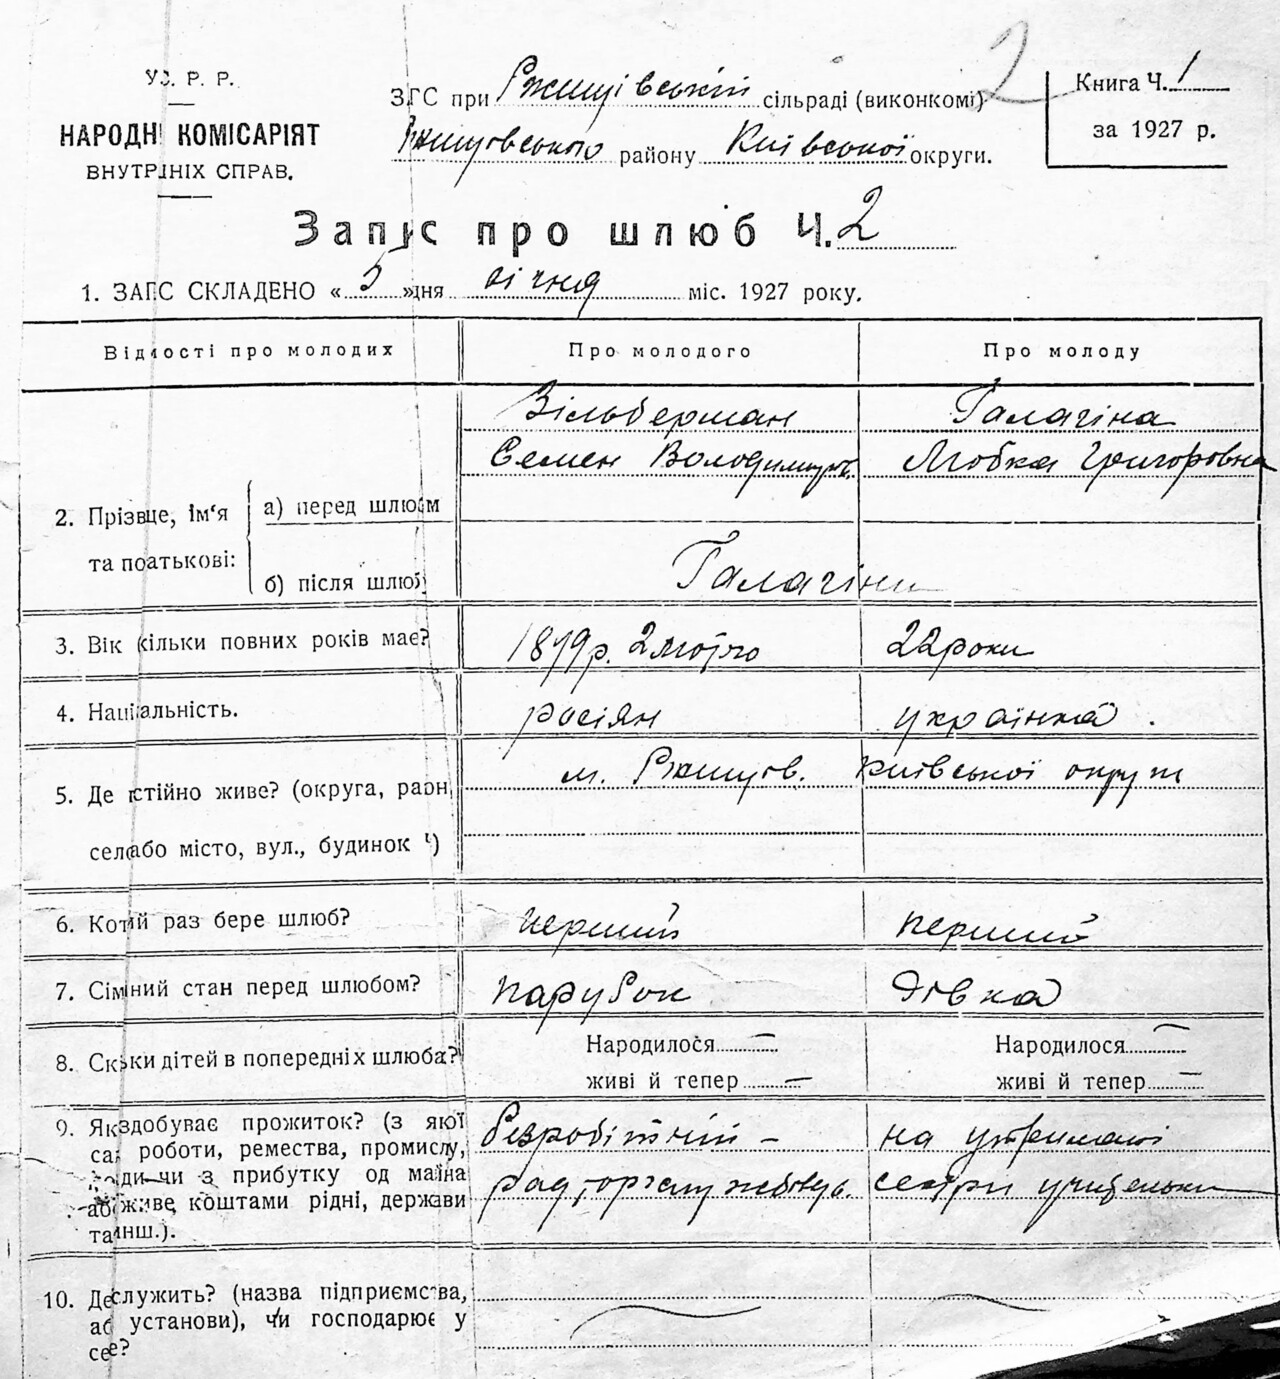 2
У.С.Р.Р.
НАРОДНІ КОМІСАРІЯТ
ВНУТРІШНІХ СПРАВ.
ЗГС при Ржищівській сільраді (виконкомі)
Ржищівського району Київської округи.
Книга Ч. 1
за 1927 р.
Запис про шлюб Ч. 2
1. ЗАГС СКЛАДЕНО «5» дня січня міс. 1927 року.
Відмості про молодих Про молодого Про молоду
Зільберман Галагіна
Семен Володимиров. Любка Григоровна
2. Прізвще, ім'я
та поатькові:
а) перед шлюбм
б) після шлюбу
Галагіни
3. Вік скільки повних років має? 1899р. 2 лютго 22 роки
4. Націальність. росіян українка.
5. Де стійно живе? (округа, раон, м. Ржищів. Київської округи
село або місто, вул., будинок ч)
6. Котий раз бере шлюб? перший перший
7. Сімний стан перед шлюбом? парубок дівка
8. Скьки дітей в попередніх шлюба? Народилося — Народилося —
живі й тепер — живі й тепер —
9. Як здобуває прожиток? (з якої безробітний – на утриманні
са роботи, ремества, промислу, рад,торгслужбовць. сестри учительки
ди чи з прибутку од маїна
або живе, коштами рідні, держави
та инш.).
10. Де служить? (назва підприємства,
аб установи), чи господарює у
сее?